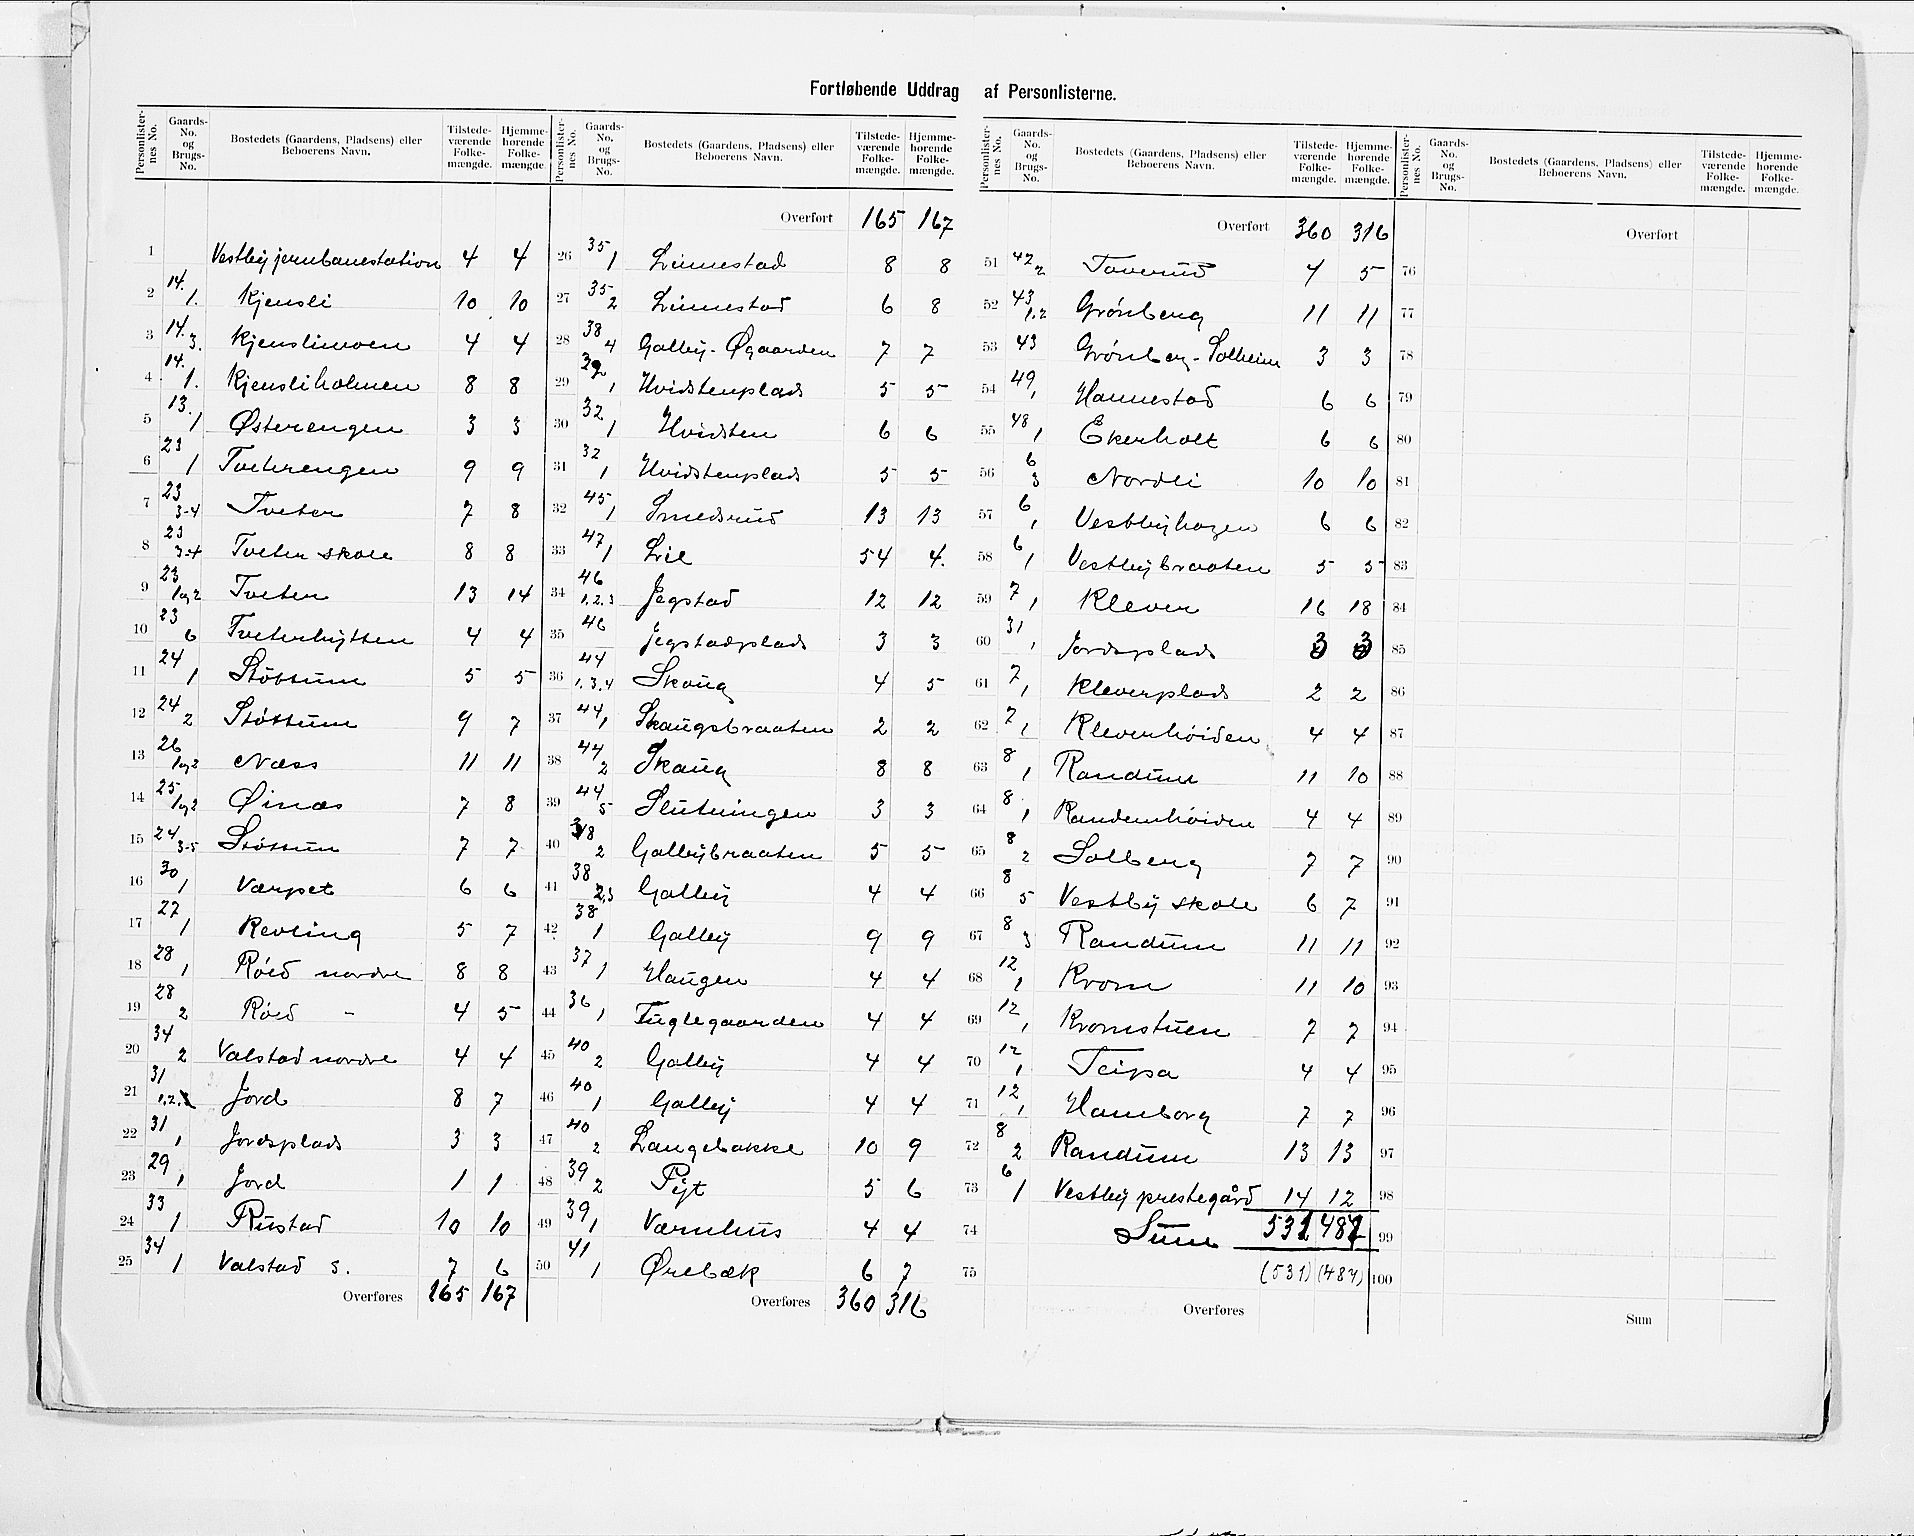 Fortløbende Uddrag af Personlisterne.
Personlisternes No. Gaards-No. og Brugs-No. Bostedets (Gaardens, Pladsens) eller Beboerens Navn. Tilstedeværende Folkemængde. Hjemmehørende Folkemængde.
1 Vestby jernbanestation 4 4
2 14. 1. Kjensli 10 10
3 14. 3. Kjenslimoen 4 4
4 14. 1. Kjensliholmen 8 8
5 13. 1 Østerengen 3 3
6 23 1 Tveterengen 9 9
7 23 3-4 Tveter 7 8
8 23 3-4 Tveter skole 8 8
9 23 1og2 Tveter 13 14
10 23 6 Tveterhytten 4 4
11 24 1 Støttum 5 5
12 24 2 Støttum 9 7
13 26 1og2 Næss 11 11
14 25 1og2 Øinæs 7 8
15 24 3-5 Støttum 7 7
16 30 1 Værpet 6 6
17 27 1 Revling 5 7
18 28 1 Röed nordre 8 8
19 28 2 Röed - 4 5
20 34 2 Valstad nordre 4 4
21 31 1.2. Jord 8 7
22 31 1 Jordsplads 3 3
23 29 1 Jord 1 1
24 33 1 Rustad 10 10
25 34 1 Valstad s. 7 6
Overføres 165 167
Personlisternes No. Gaards-No. og Brugs-No. Bostedets (Gaardens, Pladsens) eller Beboerens Navn. Tilstedeværende Folkemængde. Hjemmehørende Folkemængde.
Overført 165 167
26 35 1 Linnestad 8 8
27 35 2 Linnestad 6 8
28 38 4 Galby-Øgaarden 7 7
29 32 1 Hvidstenplads 5 5
30 32 1 Hvidsten 6 6
31 32 1 Hvidstenplads 5 5
32 45 1 Smedsrud 13 13
33 47 1 Lie 54 4.
34 46 1.2.3 Jegstad 12 12
35 46 Jegstadplads 3 3
36 44 1.3.4 Skaug 4 5
37 44 1 Skaugsbraaten 2 2
38 44 2 Skaug 8 8
39 44 5 Slutningen 3 3
40 38 2 Galbybraaten 5 5
41 38 2,3 Galby 4 4
42 38 1 Galby 9 9
43 37 1 Haugen 4 4
44 36 1 Fuglegaarden 4 4
45 40 2 Galby 4 4
46 40 1 Galby 4 4
47 40 2 Langebakke 10 9
48 39 2 Pyt 5 6
49 39 1 Varnhus 4 4
50 41 1 Ørebæk 6 7
Overføres 360 316
Personlisternes No. Gaards-No. og Brugs-No. Bostedets (Gaardens, Pladsens) eller Beboerens Navn. Tilstedeværende Folkemængde. Hjemmehørende Folkemængde.
Overført 360 316
51 42 2 Taverud 4 5
52 43 1.2 Grönberg 11 11
53 43 Grönberg-Solheim 3 3
54 49 1 Hannestad 6 6
55 48 1 Ekerholt 6 6
56 6 3 Nordli 10 10
57 6 1 Vestbyhagen 6 6
58 6 1 Vestbybraaten 5 5
59 7 1 Klever 16 18
60 31 1 Jordsplads 3 3
61 7 1 Kleverplads 2 2
62 7 1 Kleverhöiden 4 4
63 8 1 Randum 11 10
64 8 1 Randemhöiden 4 4
65 8 2 Solberg 7 7
66 8 5 Vestby skole 6 7
67 8 3 Randum 11 11
68 12 1 Krom 11 10
69 12 1 Kromstuen 7 7
70 12 1 Teipa 4 4
71 12 1 Hamborg 7 7
72 8 2 Randum 13 13
73 6 1 Vestby prestegård 14 12
74 Sum 531 487
75 (531) (487)
Overføres
Personlisternes No. Gaards-No. og Brugs-No. Bostedets (Gaardens, Pladsens) eller Beboerens Navn. Tilstedeværende Folkemængde. Hjemmehørende Folkemængde.
Overført
76
77
78
79
80
81
82
83
84
85
86
87
88
89
90
91
92
93
94
95
96
97
98
99
100
Sum